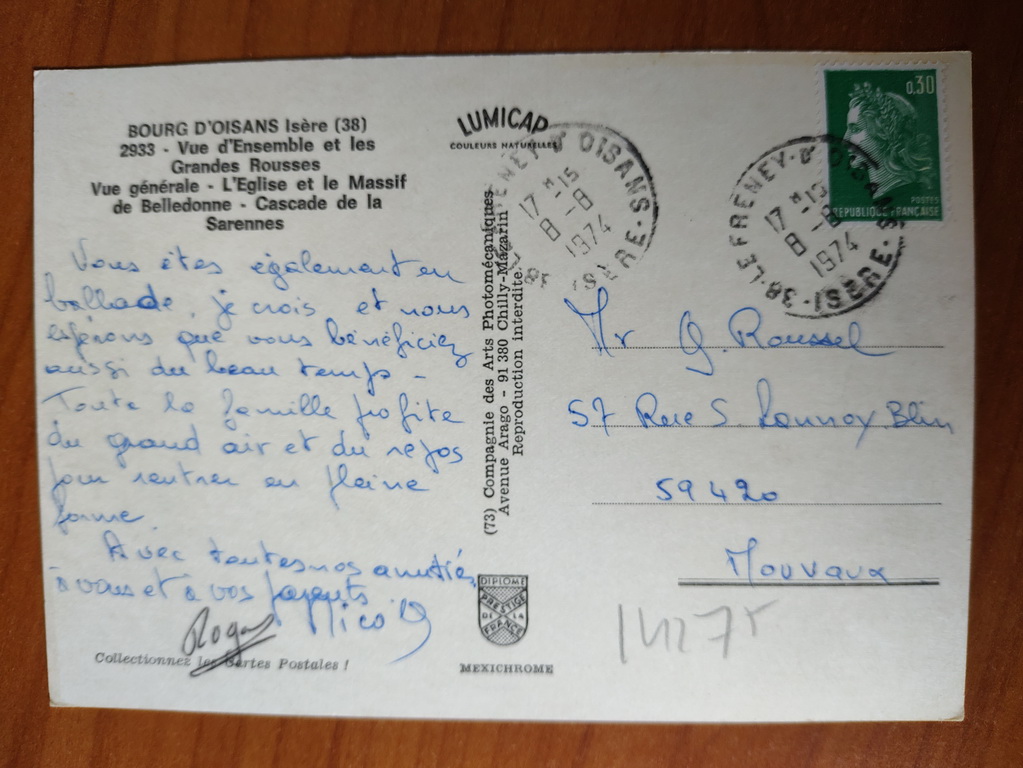 BOURG D'OISANS Isère (38)
2933 - Vue d'Ensemble et les
Grandes Rousses
Vue générale - L'Eglise et le Massif
de Belledonne - Cascade de la
Sarennes
Vous êtes également en
ballade, je crois et nous
espérons que vous bénéficiez
aussi du beau temps -
Toute la famille profite
du grand air et du repos
pour rentrer en pleine
forme.
Avec toutes nos amitiés
à vous et à vos parents
Roger
Collectionnez les Cartes Postales !
LUMICAP
COULEURS NATURELLES
(73) Compagnie des Arts Photomécaniques
Avenue Arago - 91 380 Chilly-Mazarin
Reproduction interdite.
DIPLOME
PRESTIGE
DE LA
FRANCE
MEXICHROME
D'OISANS
17 H -15
8 -8
1974
ISERE
38 - LE FRENEY - D'OISANS
17 H -15
8 -8
1974
ISERE
0,30
POSTES
REPUBLIQUE FRANÇAISE
Mr G. Roussel
57 Rue S. Lannoy Blin
59420
Mouvaux